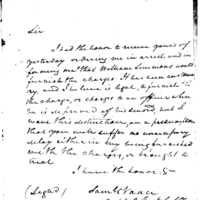 Sir
I had the honor to receive yours of
yesterday ordering me in arrest, and in-
forming me that William Simmons would
furnish the charges. It has been customa-
ry, and I believe is legal, to furnish
the charge, or charges to an officer when
he is deprived of his sword, but I
wave this distinction, on a presumption
that you will suffer no unnecessary
delay either in my being furnished
with the charges, or brought to
trial
I have the honor, &c
(Signed)